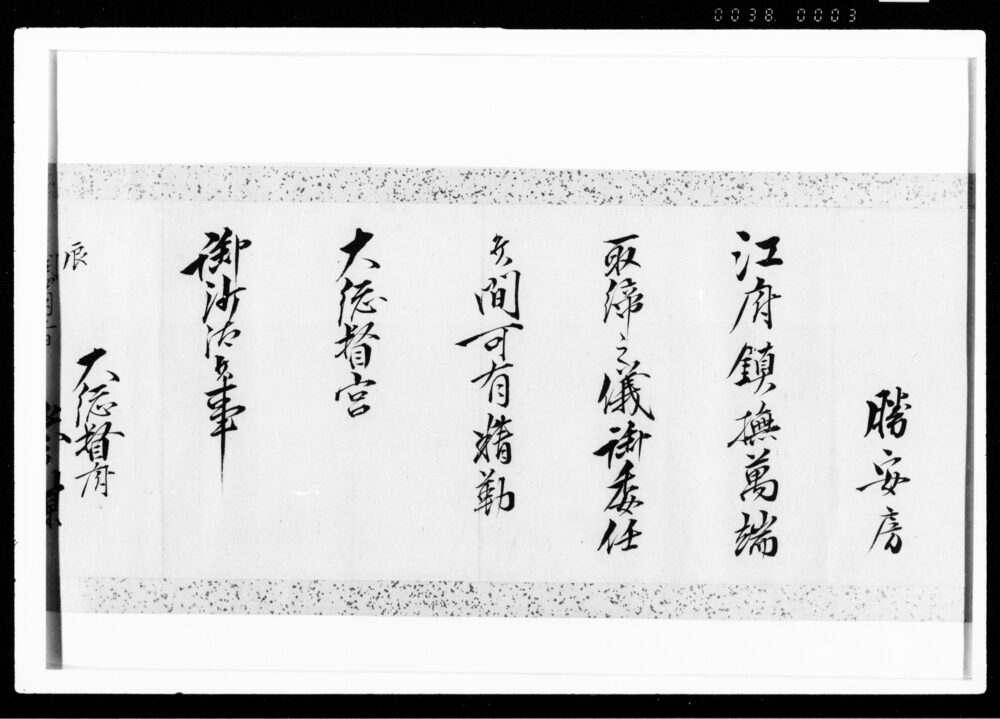 0038 0003
勝安房
江府鎮撫萬端
取締之儀御委任
候間可有精勤
大総督宮
御沙汰候事
辰
大総督府